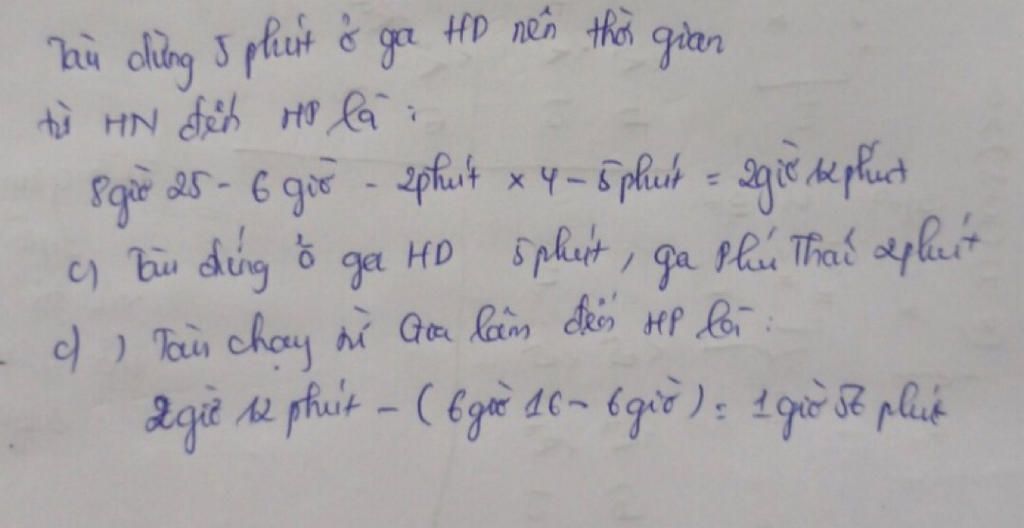 Tàu dừng 5 phút ở ga HD nên thời gian
từ HN đến HP là :
8giờ 25 - 6 giờ - 2phút × 4 - 5phút = 2giờ 12phút
c) Tàu dừng ở ga HD 5phút, ga Phú Thái 2phút
d) ) Tàu chạy từ Gia lâm đến HP là :
2giờ 12 phút - ( 6giờ 16 - 6giờ ) = 1giờ 56 phút